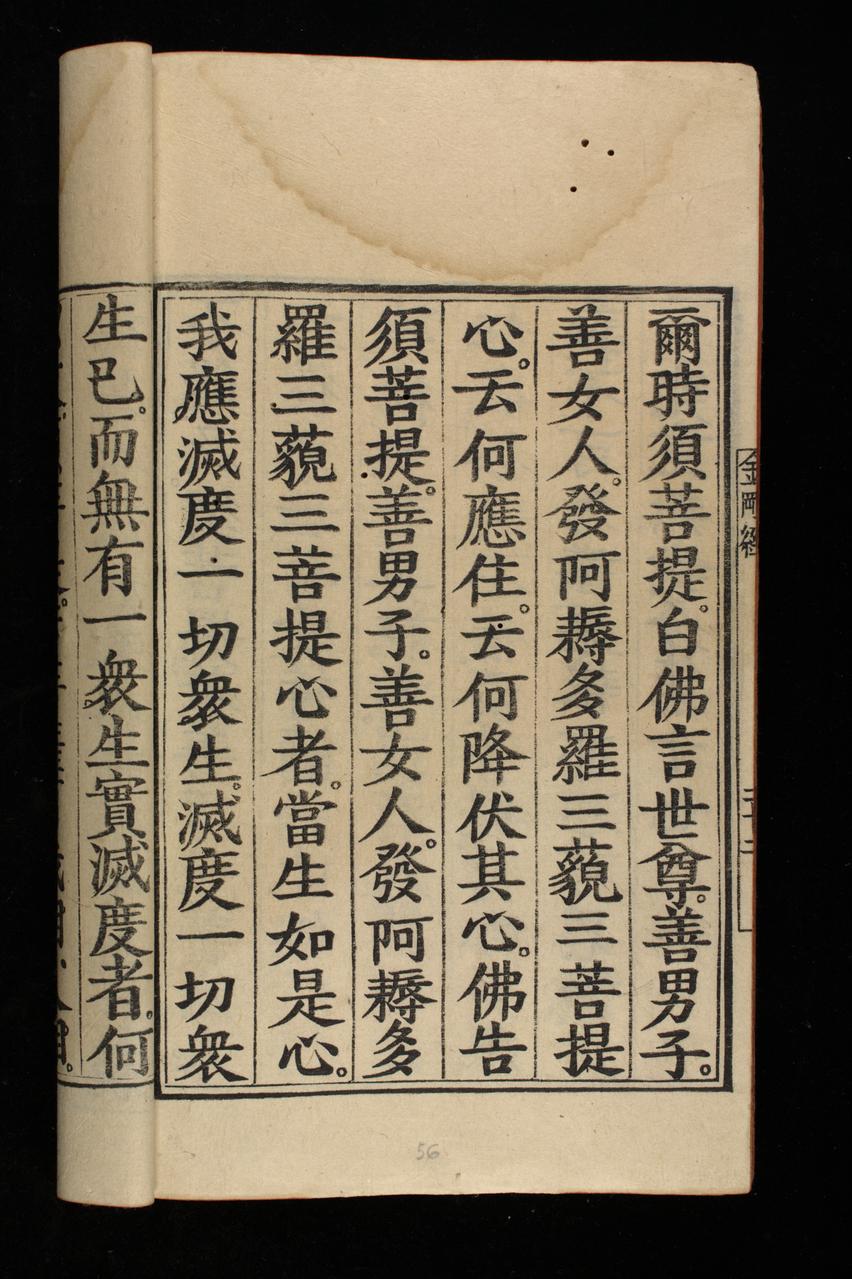 金剛經
爾時須菩提。白佛言世尊。善男子。
善女人。發阿耨多羅三藐三菩提
心。云何應住。云何降伏其心。佛告
須菩提。善男子。善女人。發阿耨多
羅三藐三菩提心者。當生如是心。
我應滅度一切衆生。滅度一切衆
生已。而無有一衆生實滅度者。何
56